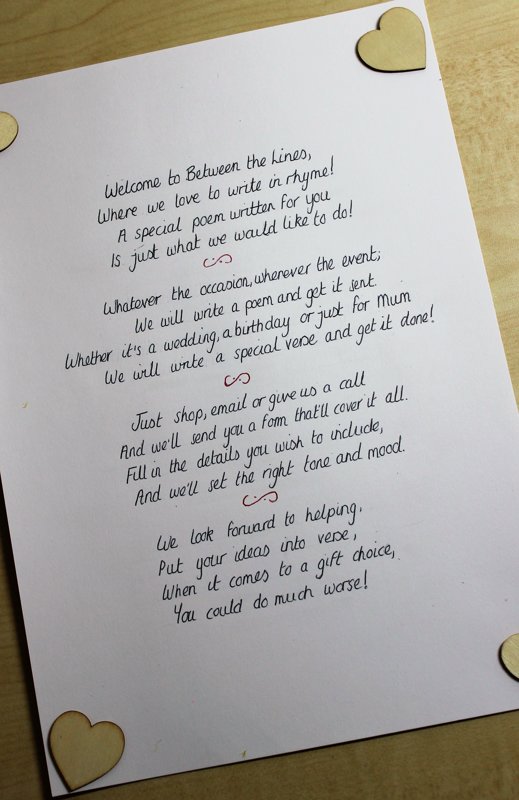 Welcome to Between the Lines,
Where we love to write in rhyme!
A special poem written for you
Is just what we would like to do!
Whatever the occasion, whenever the event;
We will write a poem and get it sent.
Whether it's a wedding, a birthday or just for Mum
We will write a special verse and get it done!
Just shop, email or give us a call
And we'll send you a form that'll cover it all.
Fill in the details you wish to include,
And we'll set the right tone and mood.
We look forward to helping,
Put your ideas into verse,
When it comes to a gift choice,
You could do much worse!